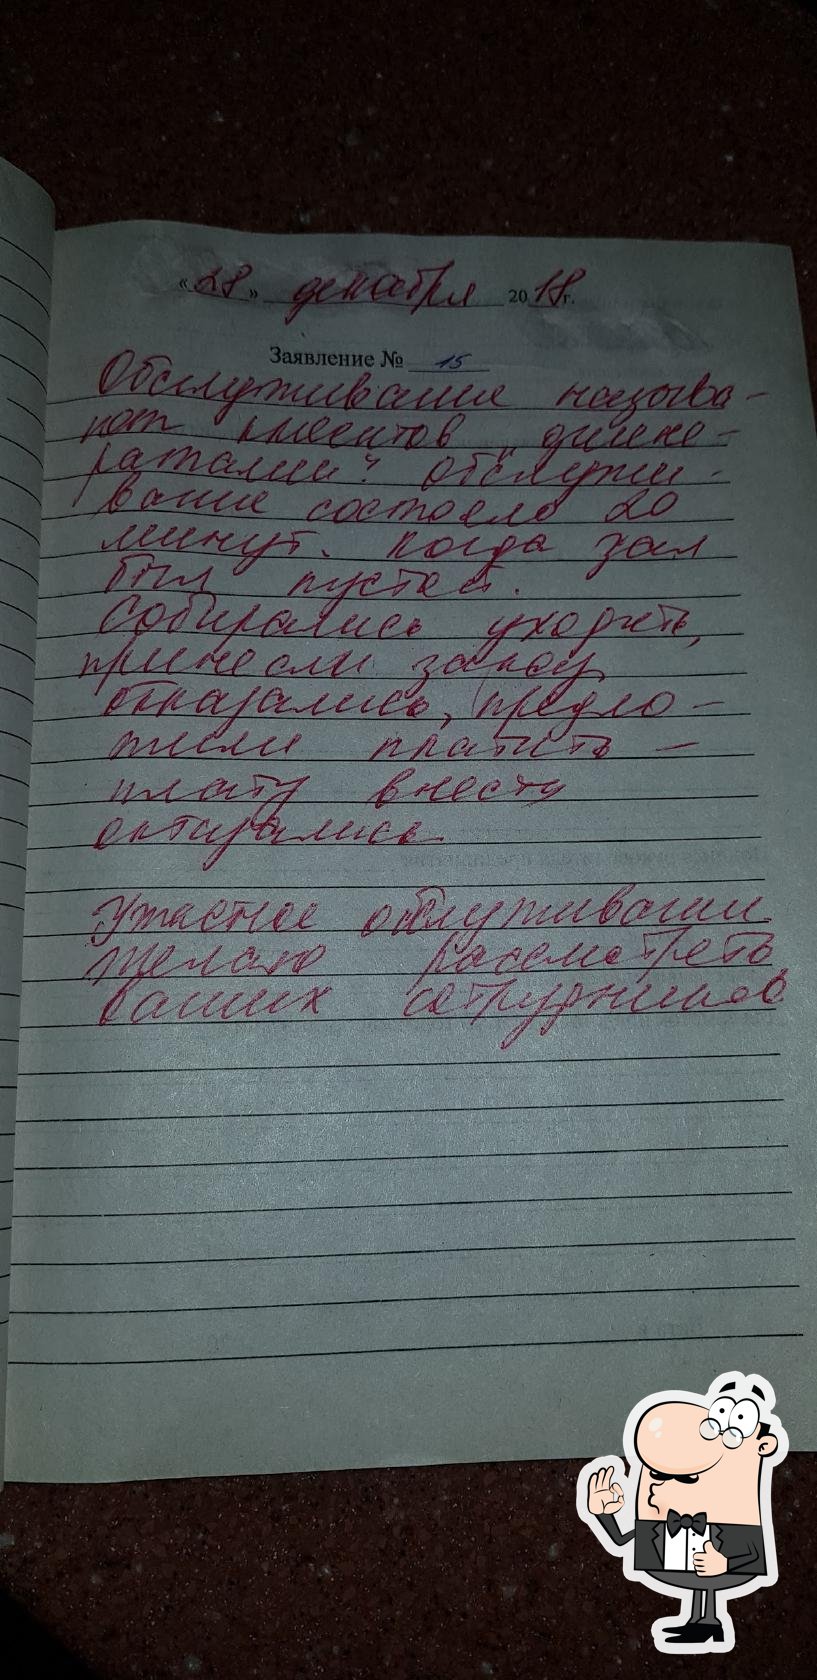 «28» декабря 2018г.
Заявление № 15
Обслуживание называ-
ют клиентов
обслужи-
вание состояло 20
минут. Когда зал
был пустой.
Собирались уходить,
принесли
отказались, предло-
жили платить -
плату внести
октазались
Ужасное обслуживании
желаю рассмотреть
ваших сотрудников